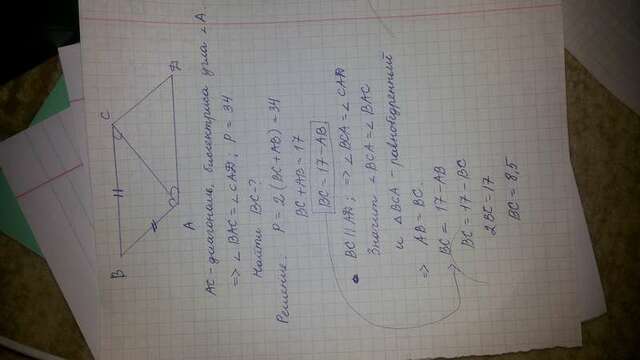 B C
A D
AC - диагональ, биссектриса угла ∠A
=> ∠BAC = ∠CAD; P = 34
Найти BC-?
Решение. P = 2(BC + AB) = 34
BC + AB = 17
BC = 17 - AB
BC || AD; => ∠BCA = ∠CAD
Значит ∠BCA = ∠BAC
и △BCA - равнобедренный
=> AB = BC.
BC = 17 - AB
BC = 17 - BC
2BC = 17
BC = 8,5